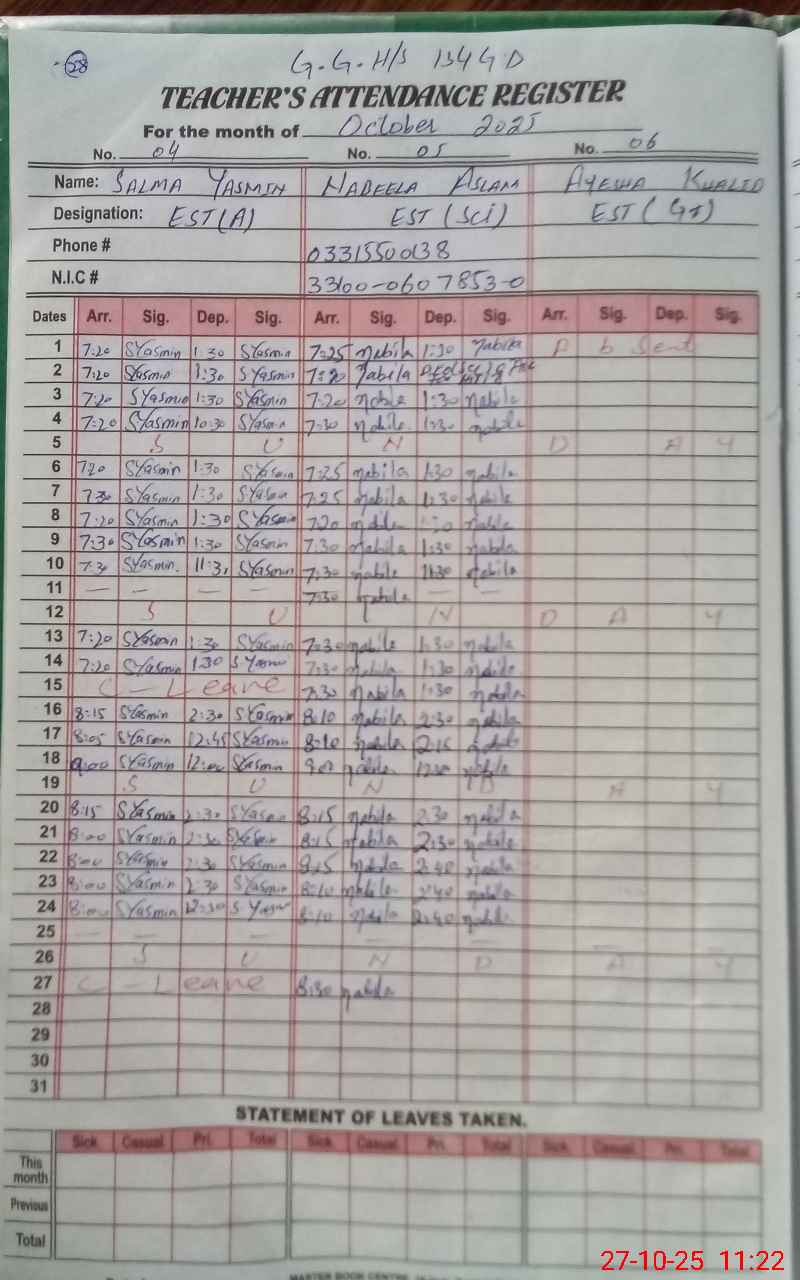 28
G.G.H/S 134 GD
TEACHER'S ATTENDANCE REGISTER
For the month of October 2025
No. 04 No. 05 No. 06
Name: SALMA YASMIN NADEELA ASLAM AYESHA KHALID
Designation: EST(A) EST (Sci) EST (
Phone # 03315500138
N.I.C # 33100-0607853-0
Dates Arr. Sig. Dep. Sig. Arr. Sig. Dep. Sig. Arr. Sig. Dep. Sig.
1 7:20 SYasmin 1:30 SYasmin 7:25 Nabila 1:30 Nabila A b Sent
2 7:20 SYasmin 1:30 SYasmin 7:20 Nabila
3 7:20 SYasmin 1:30 SYasmin 7:20 Nabila 1:30 Nabila
4 7:20 SYasmin 10:30 SYasmin 7:30 Nabila 1:30 Nabila
5 S U N D A Y
6 7:20 SYasmin 1:30 SYasmin 7:25 Nabila 1:30 Nabila
7 7:30 SYasmin 1:30 SYasmin 7:25 Nabila 1:30 Nabila
8 7:20 SYasmin 1:30 SYasmin 7:20 Nabila 1:30 Nabila
9 7:30 SYasmin 1:30 SYasmin 7:30 Nabila 1:30 Nabila
10 7:30 SYasmin. 11:30 SYasmin 7:30 Nabila 11:30 Nabila
11 — — — — 7:30 Nabila — —
12 S U N D A Y
13 7:20 SYasmin 1:30 SYasmin 7:30 Nabila 1:30 Nabila
14 7:20 SYasmin 1:30 SYasmin 7:30 Nabila 1:30 Nabila
15 C - Leave 7:30 Nabila 1:30 Nabila
16 8:15 SYasmin 2:30 SYasmin 8:10 Nabila 2:30 Nabila
17 8:05 SYasmin 12:45 SYasmin 8:10 Nabila 2:15 Nabila
18 9:00 SYasmin 12:00 SYasmin Nabila Nabila
19 S U N D A Y
20 8:15 SYasmin 2:30 SYasmin 8:15 Nabila 2:30 Nabila
21 8:00 SYasmin 2:30 SYasmin 8:15 Nabila 2:30 Nabila
22 8:00 SYasmin 2:30 SYasmin 8:15 Nabila 2:40 Nabila
23 8:00 SYasmin 2:30 SYasmin 8:10 Nabila 2:40 Nabila
24 8:00 SYasmin 12:30 SYasmin 8:10 Nabila 2:40 Nabila
25 — — — — — — —
26 S U N D A Y
27 C - Leave 8:30 Nabila
28
29
30
31
STATEMENT OF LEAVES TAKEN.
Sick Casual Pri. Total Sick Casual Pri. Total Sick Casual Pri. Total
This month
Previous
Total
MASTER BOOK CENTRE
27-10-25 11:22